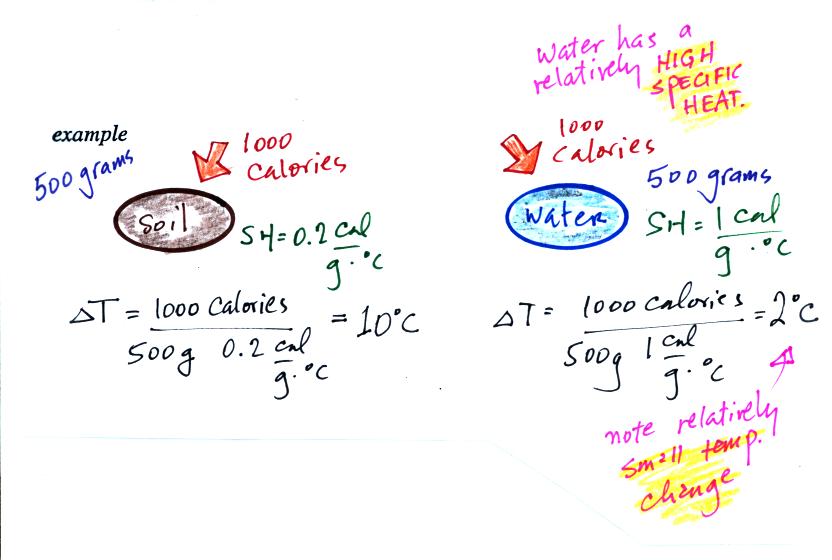 Water has a
relatively HIGH
SPECIFIC
HEAT.
example
500 grams
1000
Calories
Soil
SH = 0.2 cal
g·°C
ΔT = 1000 Calories = 10°C
500g 0.2 cal
g·°C
1000
Calories
500 grams
Water
SH = 1 cal
g·°C
ΔT = 1000 calories = 2°C
500g 1 cal
g·°C
note relatively
small temp.
change